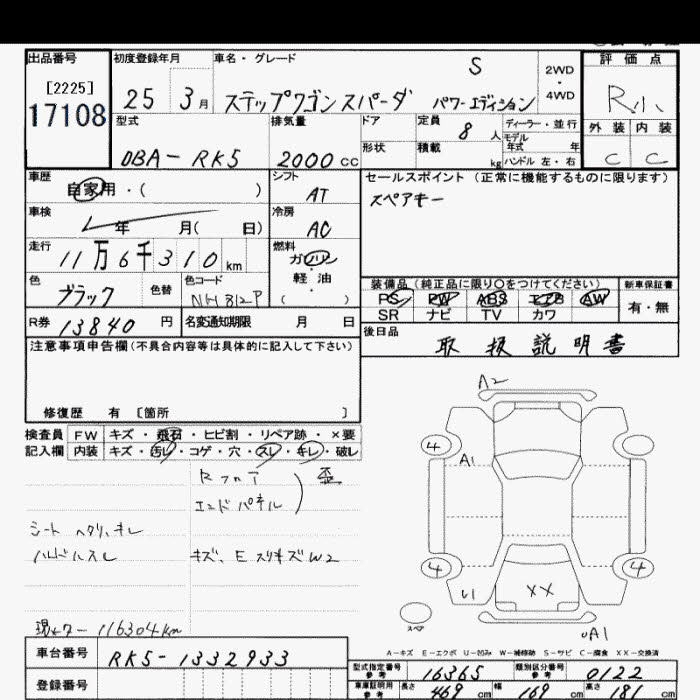 出品番号 初度登録年月 車名・グレード 評価点
[2225]
17108
25 3月 ステップワゴンスパーダ S パワーエディション 2WD・4WD R小
型式 排気量 ドア 定員 8人 ディーラー・並行 外装 内装
DBA-RK5 2000cc 形状 積載 kg モデル年式 年 ハンドル 左・右 C C
車歴 自家用・( ) シフト AT セールスポイント(正常に機能するものに限ります)
スペアキー
車検 年 月( 日) 冷房 AC
走行 11万6千310km 燃料 ガソリン・軽油 ( )
色 ブラック 色替 色コード NH812P 装備品(純正品に限り○をつけてください) 新車保証書
PS PW ABS エアB AW 有・無
SR ナビ TV カワ
R券 13840円 名変通知期限 月 日 後日品 取扱説明書
注意事項申告欄(不具合内容等は具体的に記入して下さい)
修復歴 有 〔箇所 〕
検査員 FW キズ・飛石・ヒビ割・リペア跡・×要
記入欄 内装 キズ・汚レ・コゲ・穴・スレ・キレ・破レ
Rフロア
エンドパネル 歪
シートヘタリ、キレ
ハンドルスレ キズ、E スリキズW2
現メタ- 116304km
A2
4
A1
4 4
U1 XX
スペア
A1
A-キズ E-エクボ U-凹み W-補修跡 S-サビ C-腐食 XX-交換済
車台番号 RK5-1332933
登録番号
型式指定番号 参考 16365 類別区分番号 参考 0122
車庫証明用 参考 長さ 469cm 幅 169cm 高さ 181cm